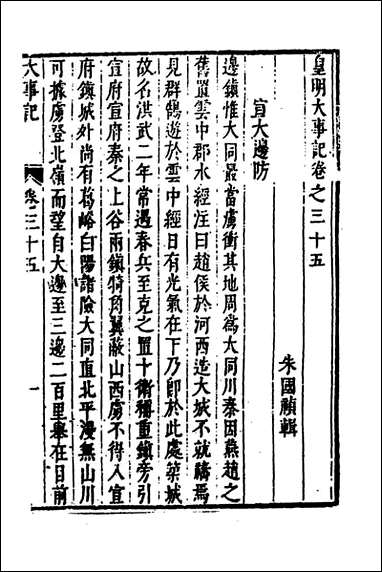 皇明大事記卷之三十五
朱國禎輯
宣大邊防
邊鎮惟大同最當虜衝其地周爲大同川秦因燕趙之
舊置雲中郡水經注曰趙侯於河西造大城不就禱焉
見群鵠遊於雲中經日有光氣在下乃卽於此處築城
故名洪武二年常遇春兵至克之置十衛稱重鎮旁引
宣府宣府秦之上谷兩鎮犄角翼蔽山西虜不得入宣
府鎮城外尚有葛峪白陽諸險大同直北平漫無山川
可據虜登北嶺而望自大邊至三邊二百里舉在日前
大事記
卷三十五
一